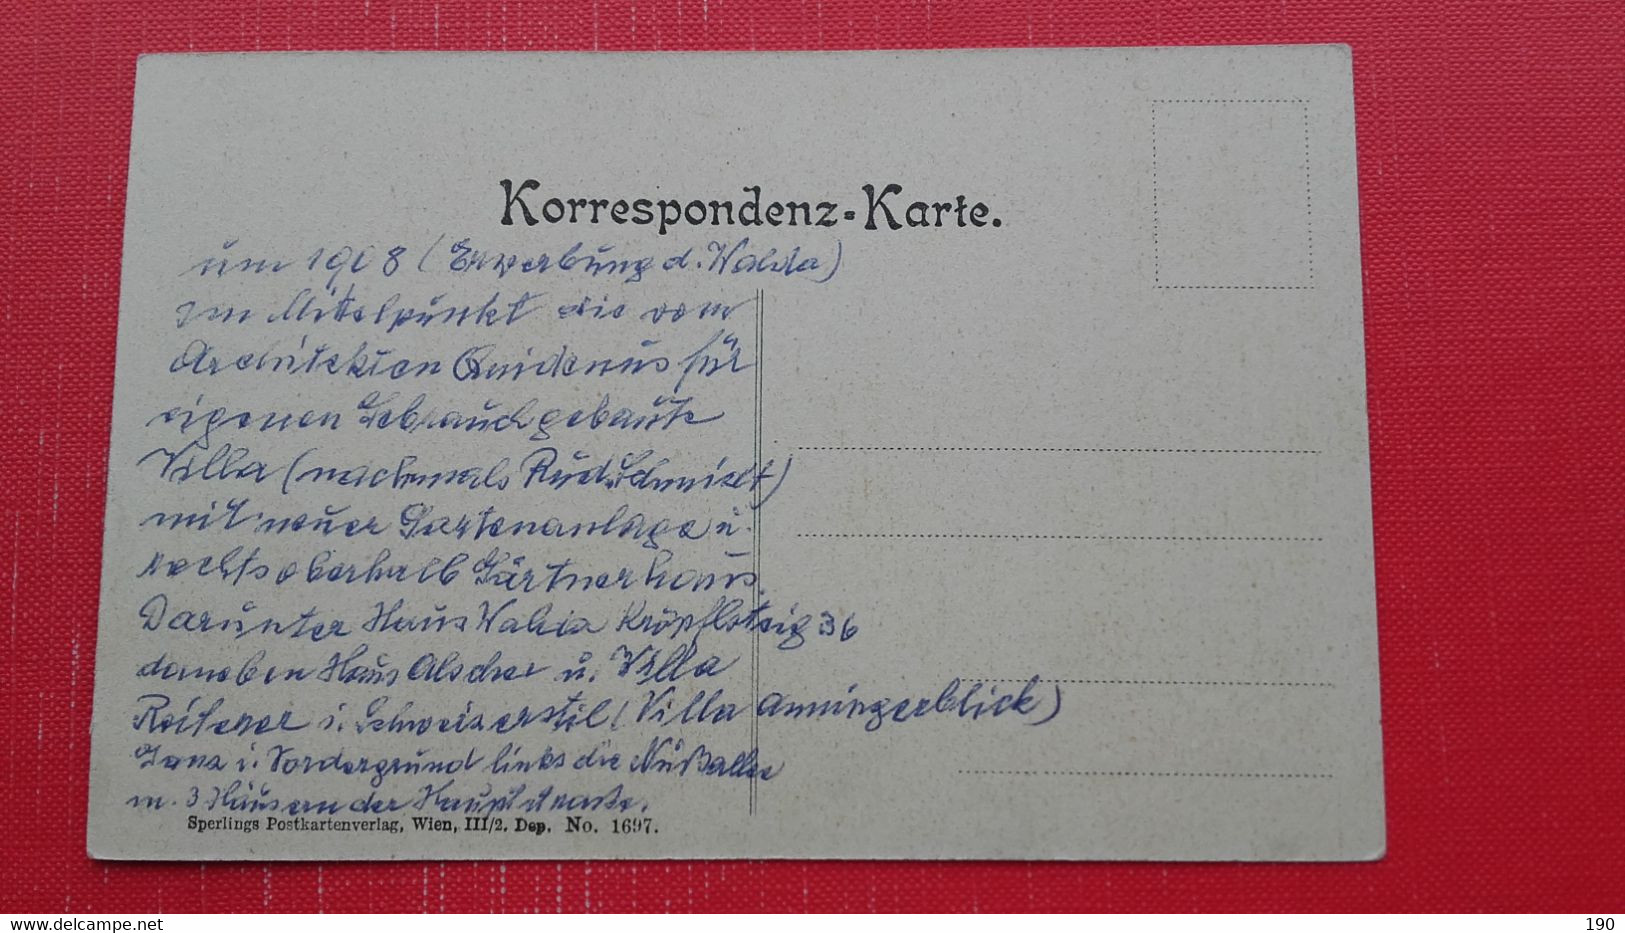 Korrespondenz-Karte.
um 1908 (Erwerbung d. Waldia)
Im Mittelpunkt die vom
Architekten für
eigenen Gebrauch gebaute
Villa (nachmals Rud. Schmidt)
mit neuer Gartenanlage u.
rechts oberhalb Gärtnerhaus.
Darunter Haus Kröpflsteig 36
daneben Haus Alscher u. Villa
Reiterer i. Schweizerstil (Villa Anningerblick)
Ganz i. Vordergrund links die Nußallee
m. 3 Häusern der Hauptstraße.
Sperlings Postkartenverlag, Wien, III/2. Dep. No. 1697.
www.delcampe.net
kolo17
190